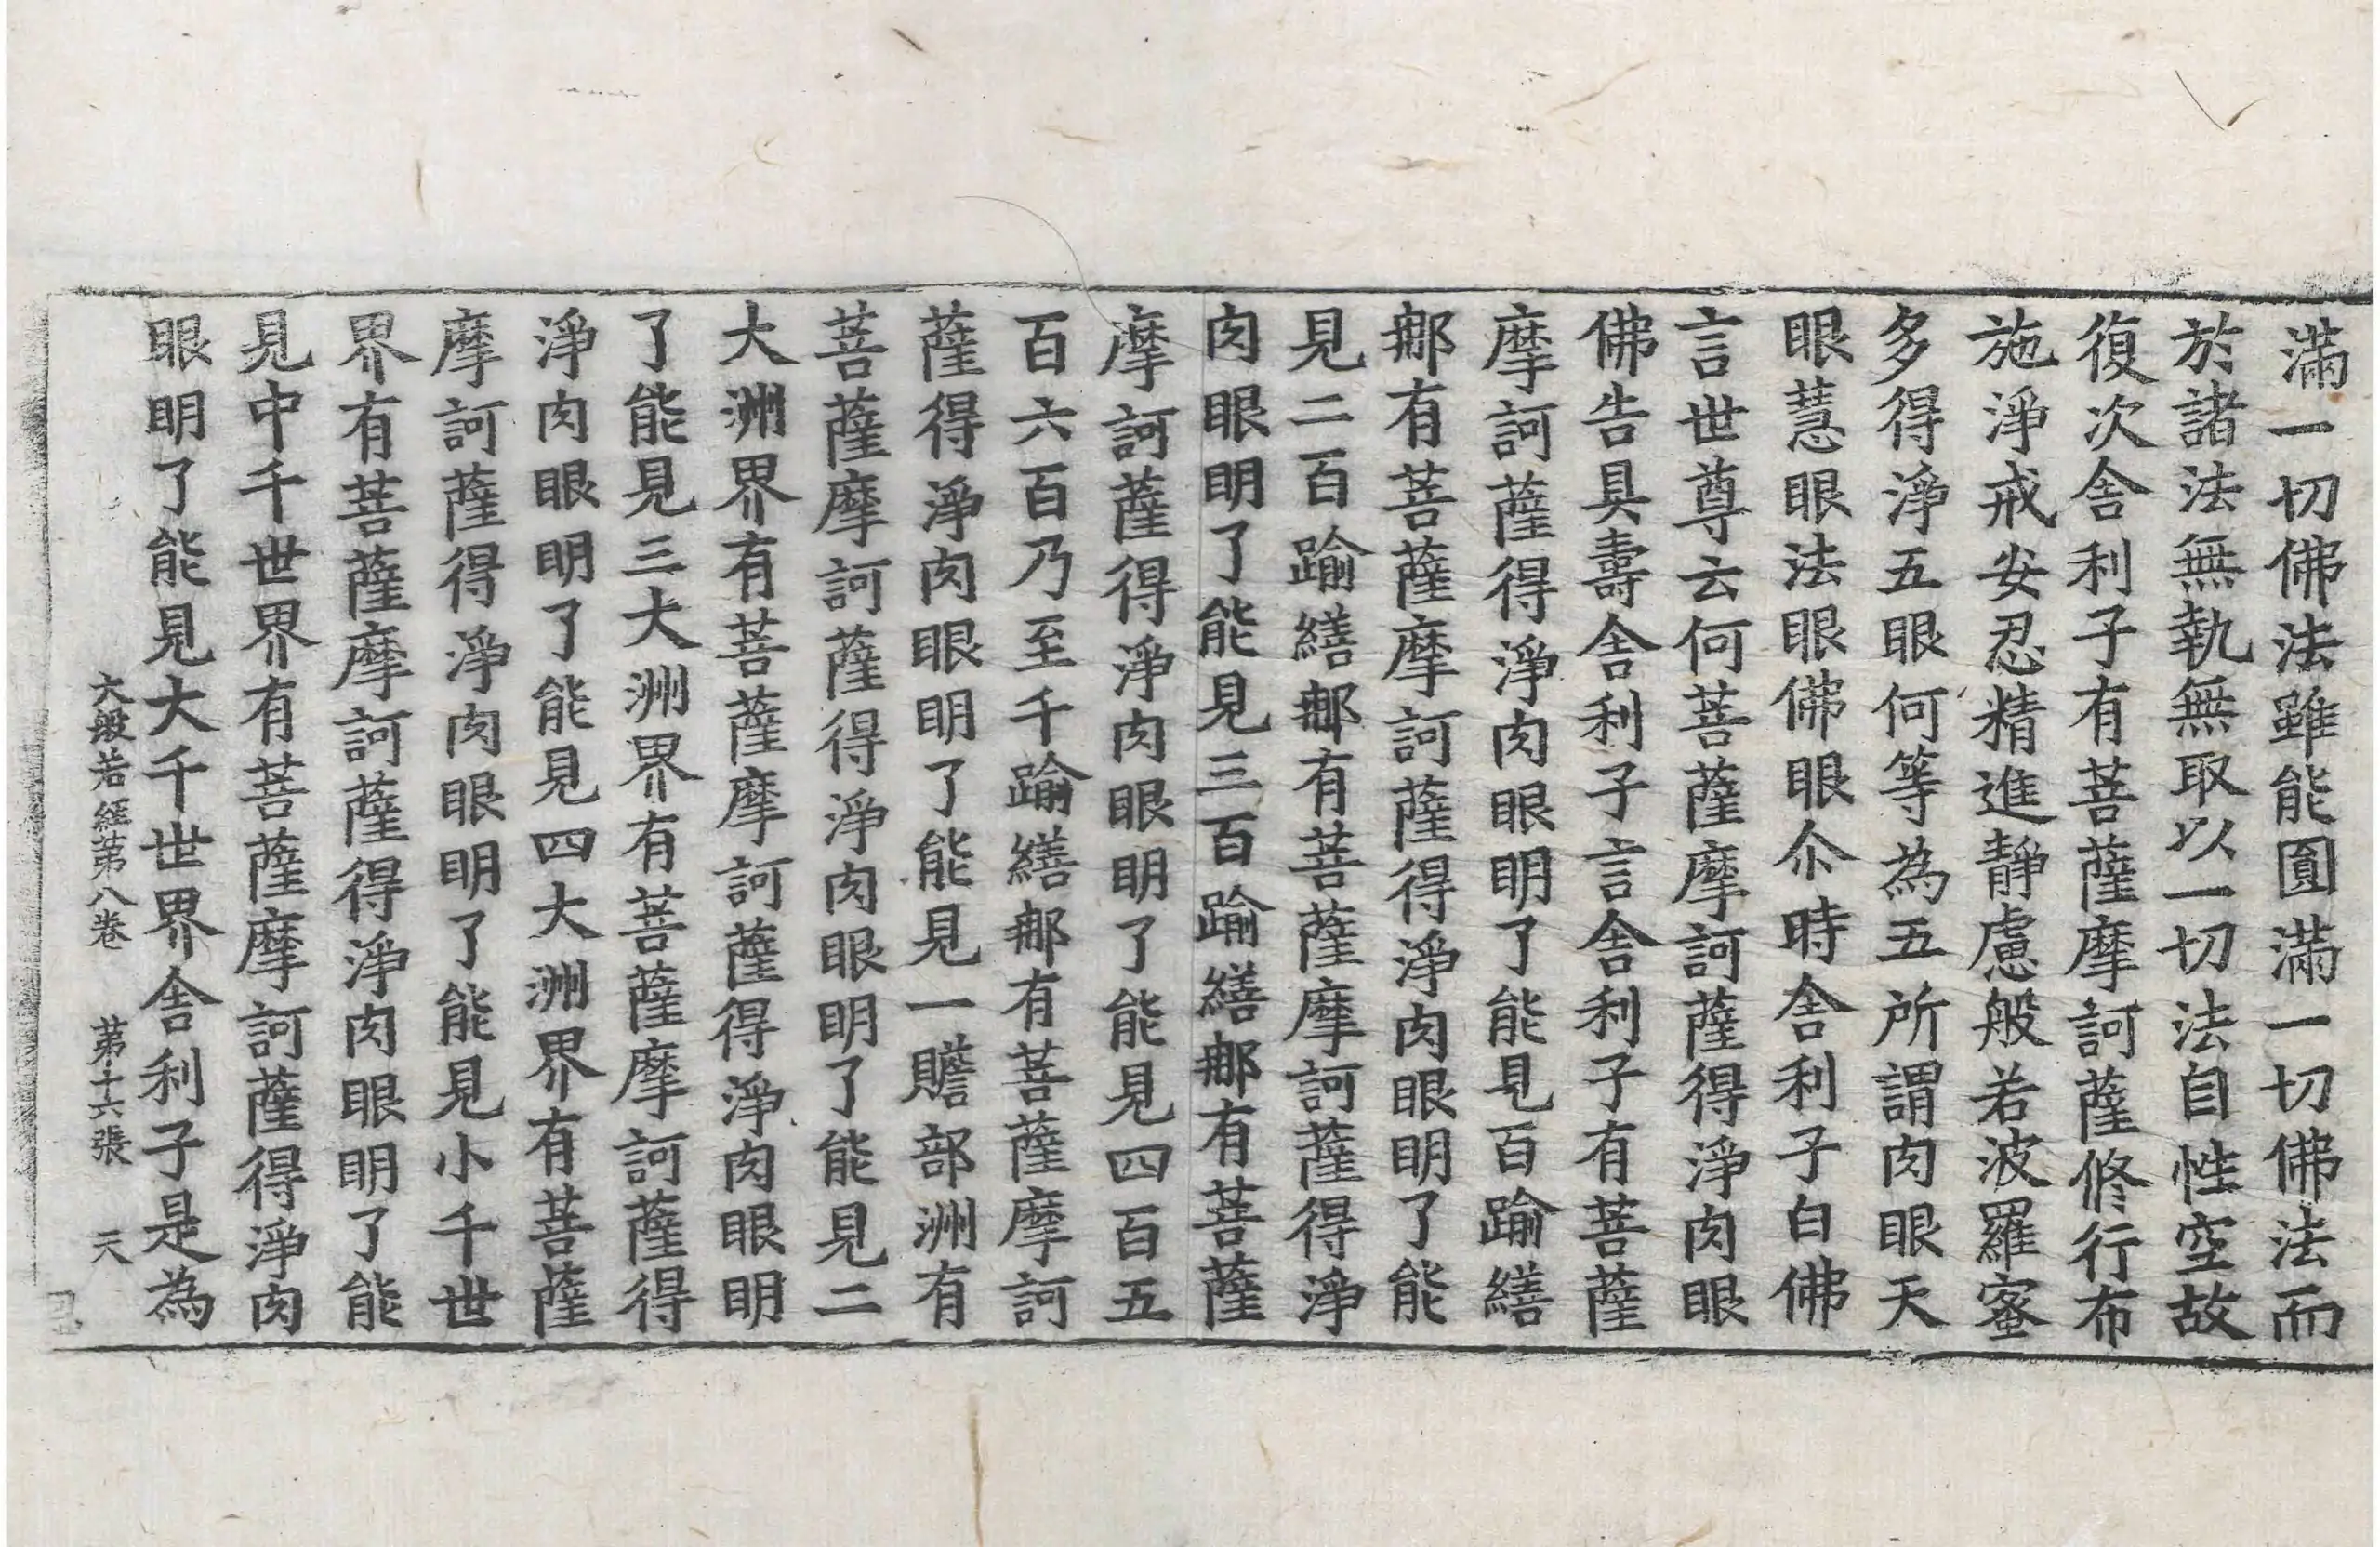 滿一切佛法雖能圓滿一切佛法而
於諸法無執無取以一切法自性空故
復次舍利子有菩薩摩訶薩修行布
施淨戒安忍精進靜慮般若波羅蜜
多得淨五眼何等為五所謂肉眼天
眼慧眼法眼佛眼尒時舍利子白佛
言世尊云何菩薩摩訶薩得淨肉眼
佛告具壽舍利子言舍利子有菩薩
摩訶薩得淨肉眼明了能見百踰繕
那有菩薩摩訶薩得淨肉眼明了能
見二百踰繕那有菩薩摩訶薩得淨
肉眼明了能見三百踰繕那有菩薩
摩訶薩得淨肉眼明了能見四百五
百六百乃至千踰繕那有菩薩摩訶
薩得淨肉眼明了能見一贍部洲有
菩薩摩訶薩得淨肉眼明了能見二
大洲界有菩薩摩訶薩得淨肉眼明
了能見三大洲界有菩薩摩訶薩得
淨肉眼明了能見四大洲界有菩薩
摩訶薩得淨肉眼明了能見小千世
界有菩薩摩訶薩得淨肉眼明了能
見中千世界有菩薩摩訶薩得淨肉
眼明了能見大千世界舍利子是為
大般若經苐八卷 苐十六張 天